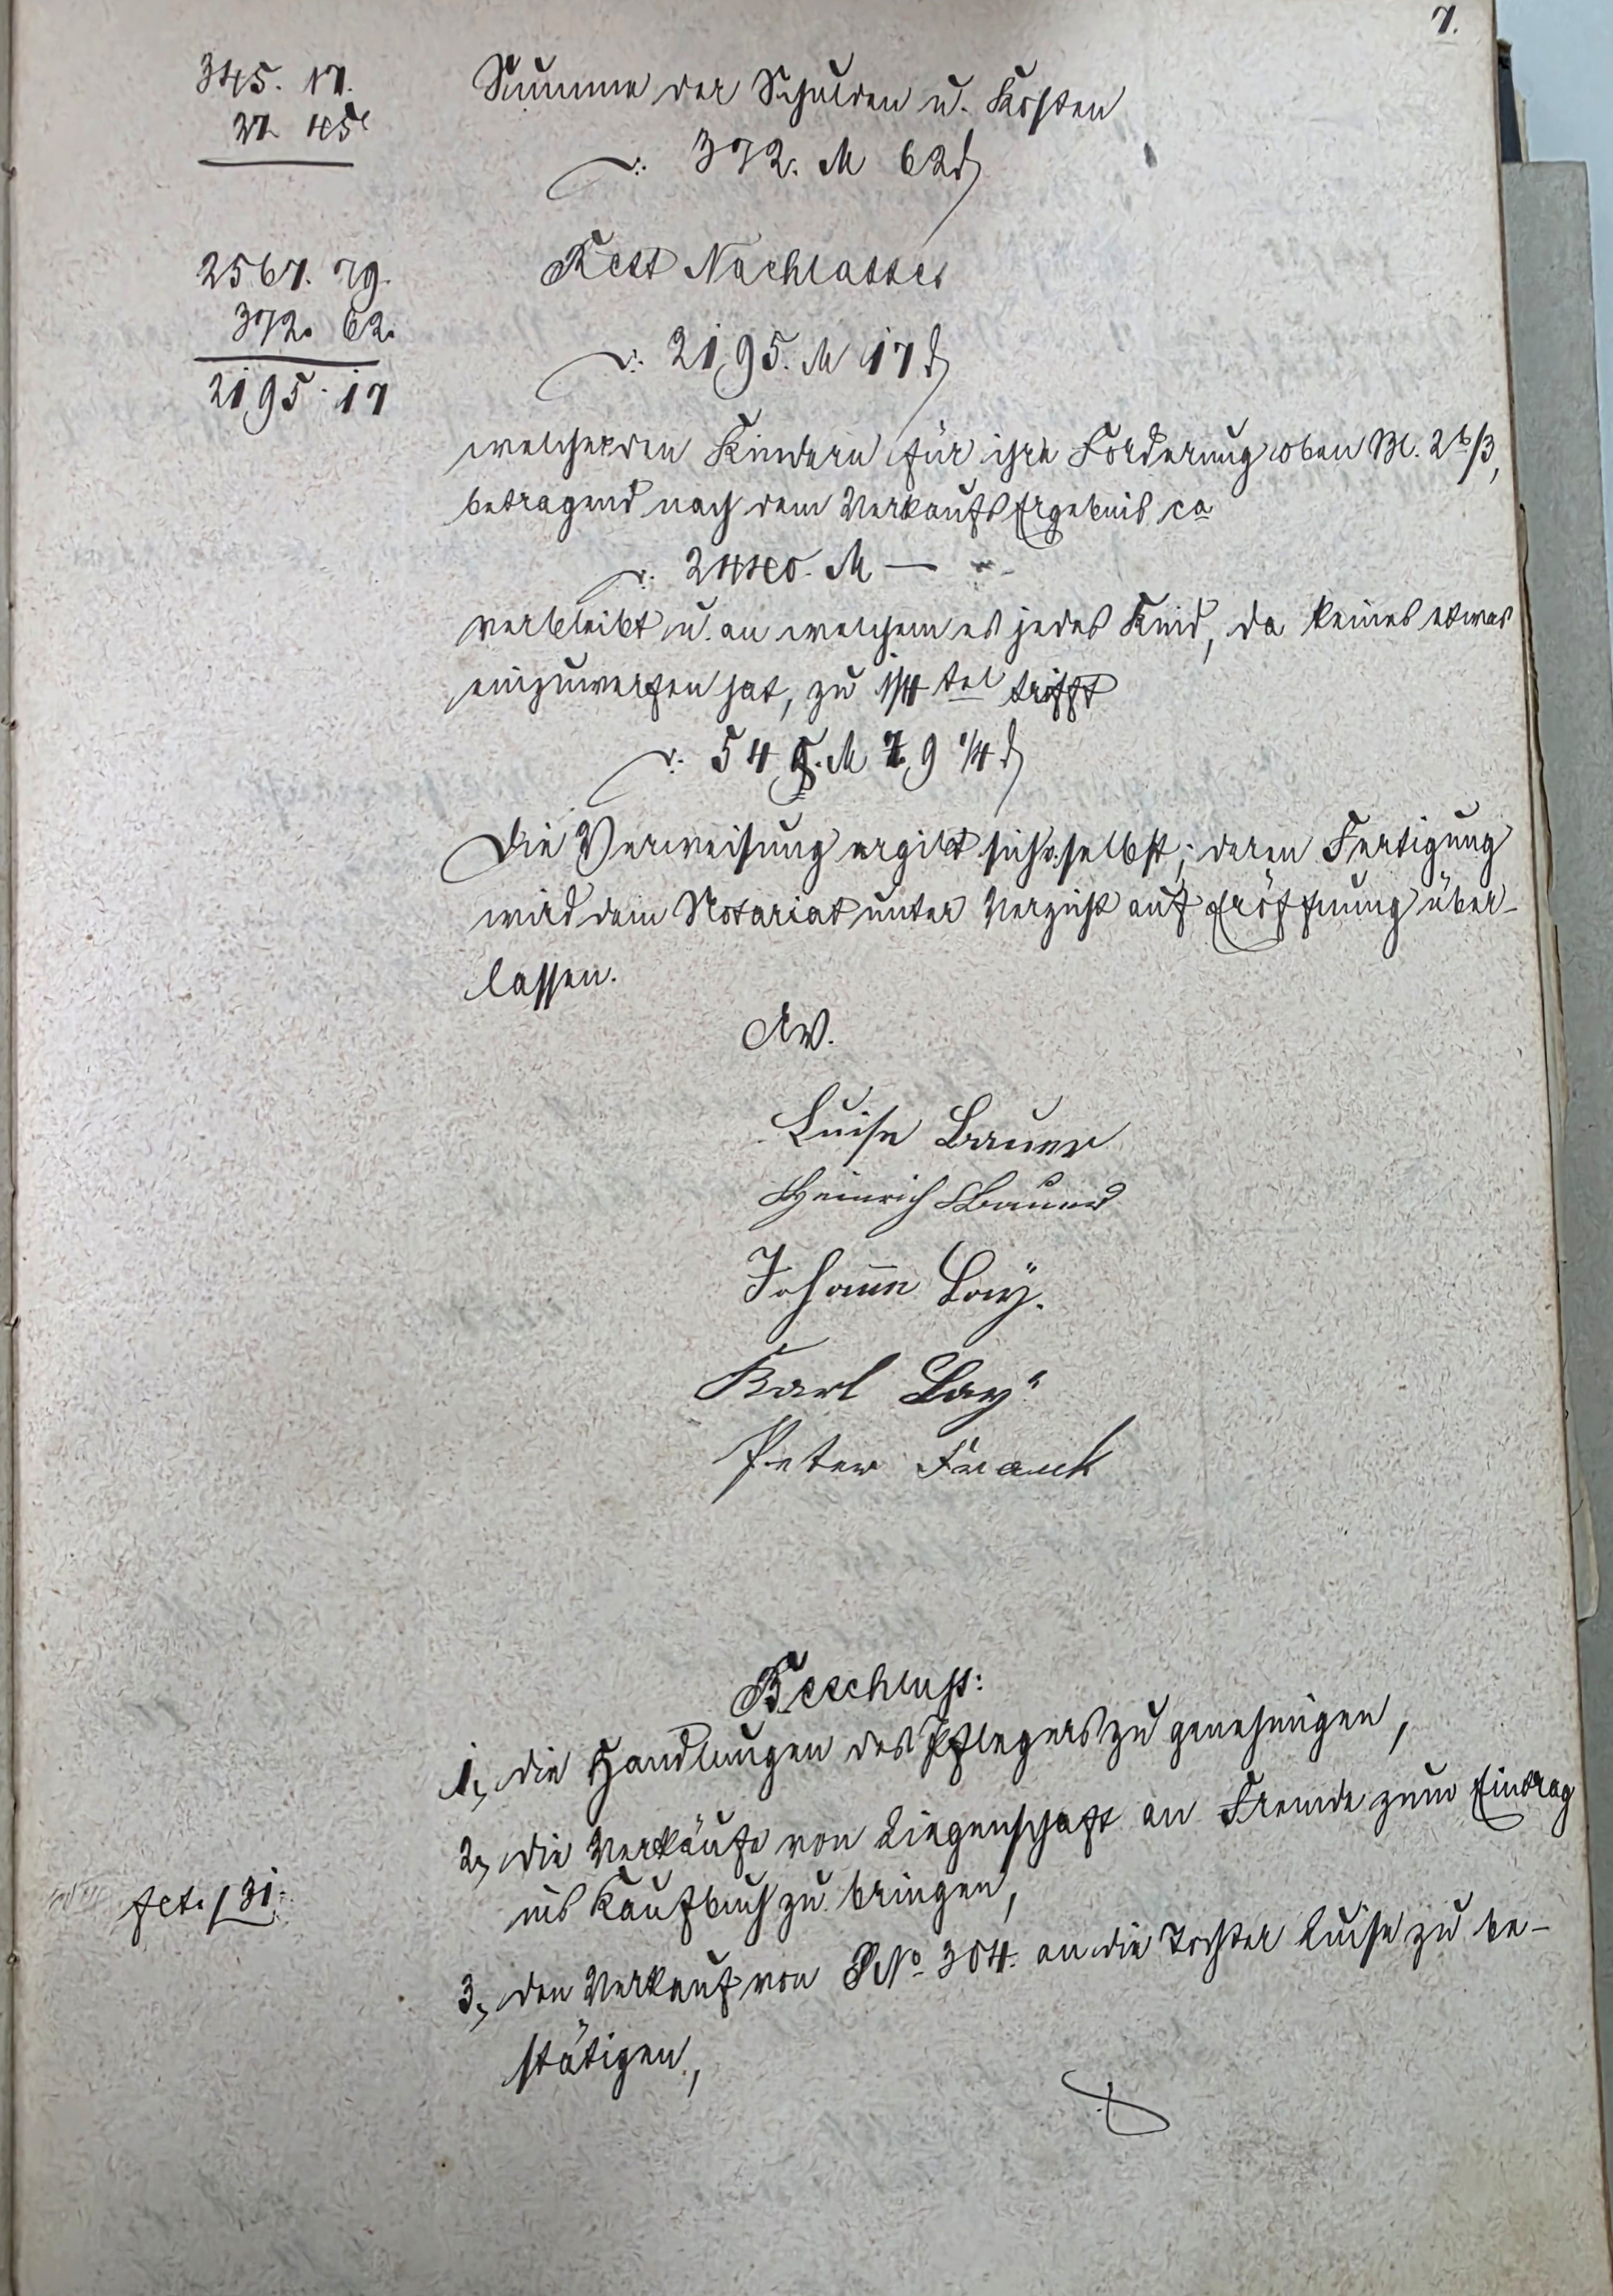 7.
345. 17.
27. 45
Summe der Schulden u. Kosten
372. M 62 ₰
2567. 79.
372. 62.
2195. 17
Rest Nachlasses
2195. M 17 ₰
welcher den Kindern für ihre Forderung oben Bl. 2b/3,
betragend nach dem Verkaufs Ergebnis ca
2440. M —
verbleibt u. an welchem es jedes Kind, da keines etwas
einzuwerfen hat, zu 1/4 tel trifft
548. M 79 1/4 ₰
Die Verweisung ergibt sich v. selbst; deren Fertigung
wird dem Notariat unter Verzicht auf Eröffnung über-
lassen.
Luise Bauer
Heinrich Bauer
Johann Lay.
Karl Lay
Peter Franck
Beschluss:
1, die Handlungen des Pflegers zu genehmigen,
2, die Verkäufe von Liegenschaft an Fremde zum Eintrag
ins Kaufbuch zu bringen,
fct. 131.
3, den Verkauf von PNo. 304. an die Tochter Luise zu be-
stätigen,